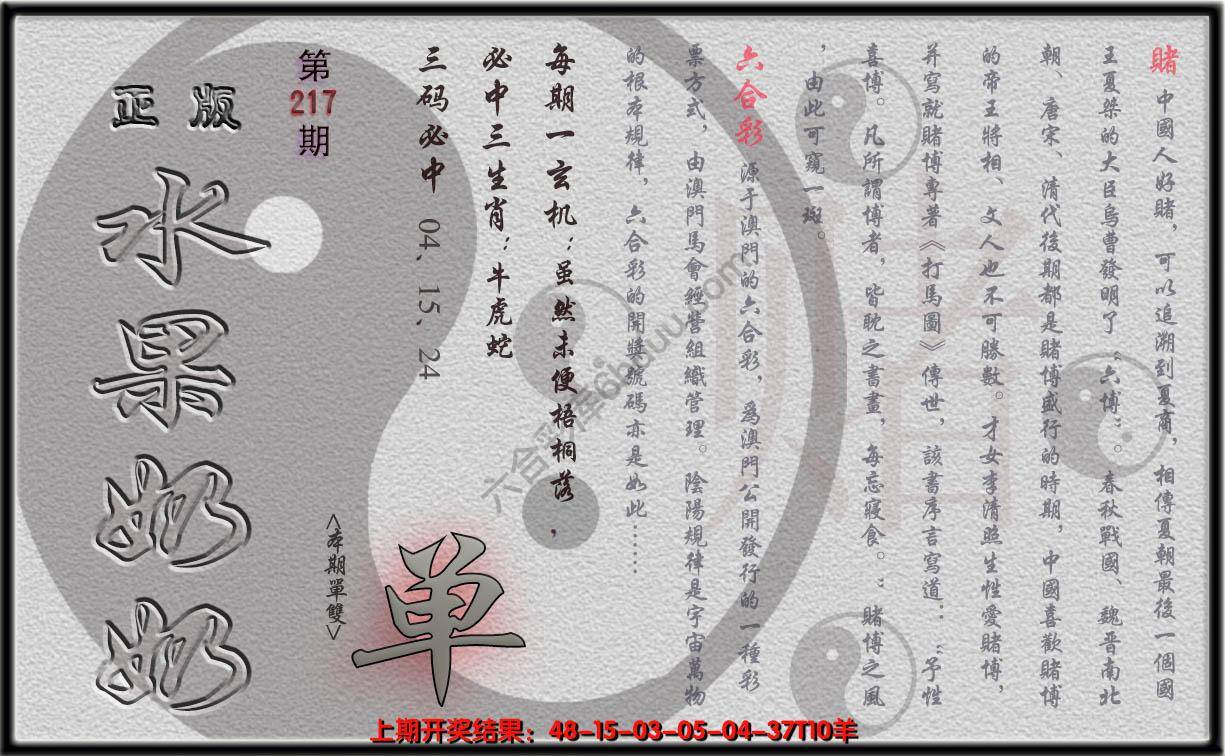 賭 中國人好賭，可以追溯到夏商，相傳夏朝最後一個國
王夏桀的大臣烏曹發明了“六博”。春秋戰國、魏晋南北
朝、唐宋、清代後期都是賭博盛行的時期，中國喜歡賭博
的帝王將相、文人也不可勝數。才女李清照生性愛賭博，
并寫就賭博專著《打馬圖》傳世，該書序言寫道：“予性
喜博。凡所謂博者，皆耽之晝晝，每忘寢食。”賭博之風
，由此可窺一斑。
六合彩 源于澳門的六合彩，爲澳門公開發行的一種彩
票方式，由澳門馬會經營組織管理。陰陽規律是宇宙萬物
的根本規律，六合彩的開獎號碼亦是如此……
每期一玄机：虽然未便梧桐落，
必中三生肖：牛虎蛇
三码必中 04、15、24
第
217
期
正版
水果奶奶
<本期單雙>
单
賭
上期开奖结果：48-15-03-05-04-37T10羊